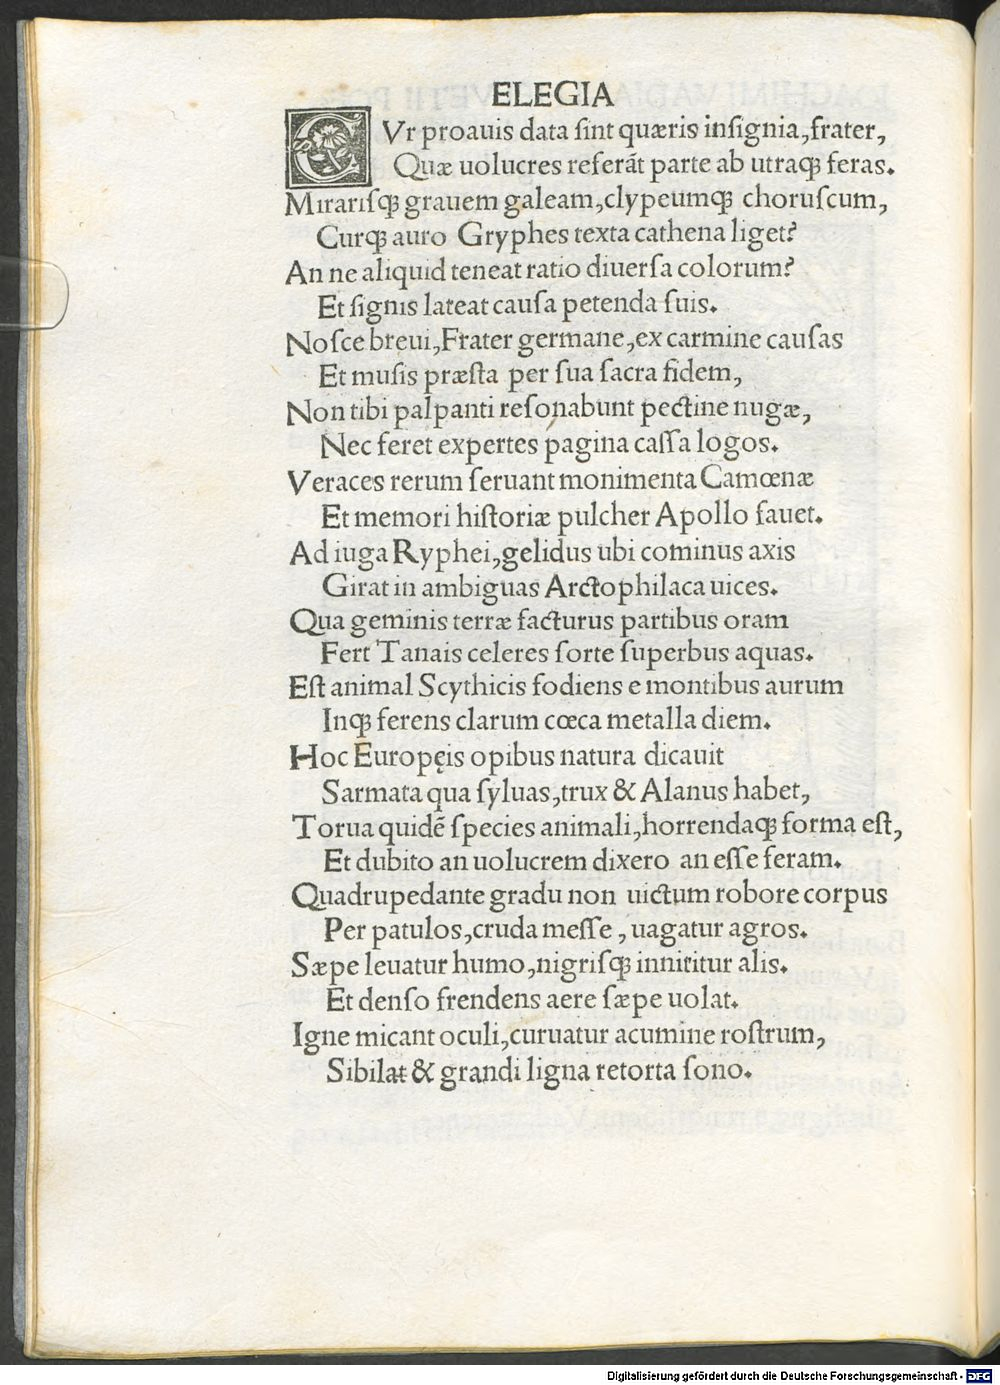 ELEGIA
CVr proauis data ſint quæris inſignia, frater,
Quæ uolucres referāt parte ab utraqꝫ feras.
Mirariſqꝫ grauem galeam, clypeumqꝫ choruſcum,
Curqꝫ auro Gryphes texta cathena liget?
An ne aliquid teneat ratio diuerſa colorum?
Et ſignis lateat cauſa petenda ſuis.
Noſce breui, Frater germane, ex carmine cauſas
Et muſis præſta per ſua ſacra fidem,
Non tibi palpanti reſonabunt pectine nugæ,
Nec feret expertes pagina caſſa logos.
Veraces rerum ſeruant monimenta Camœnæ
Et memori hiſtoriæ pulcher Apollo fauet.
Ad iuga Ryphei, gelidus ubi cominus axis
Girat in ambiguas Arctophilaca uices.
Qua geminis terræ facturus partibus oram
Fert Tanais celeres forte ſuperbus aquas.
Eſt animal Scythicis fodiens e montibus aurum
Inqꝫ ferens clarum cœca metalla diem.
Hoc Europęis opibus natura dicauit
Sarmata qua ſyluas, trux & Alanus habet,
Torua quidē ſpecies animali, horrendaqꝫ forma eſt,
Et dubito an uolucrem dixero an eſſe feram.
Quadrupedante gradu non uictum robore corpus
Per patulos, cruda meſſe, uagatur agros.
Sæpe leuatur humo, nigriſqꝫ innititur alis.
Et denſo frendens aere ſæpe uolat.
Igne micant oculi, curuatur acumine roſtrum,
Sibilat & grandi ligna retorta ſono.
Digitalisierung gefördert durch die Deutsche Forschungsgemeinschaft - DFG